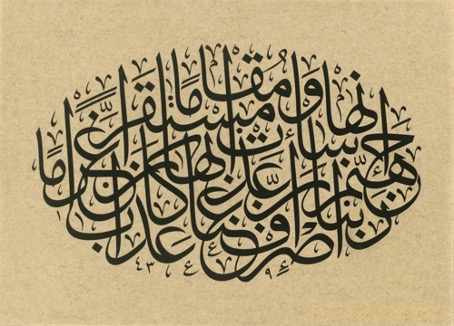 ربنا اصرف عنا عذاب جهنم إن عذابها كان غراما إنها ساءت مستقرا ومقاما